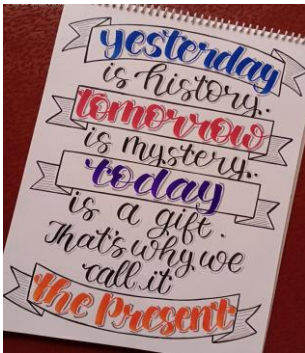 yesterday
is history.
tomorrow
is mystery.
today
is a gift.
That's why we
call it
the Present